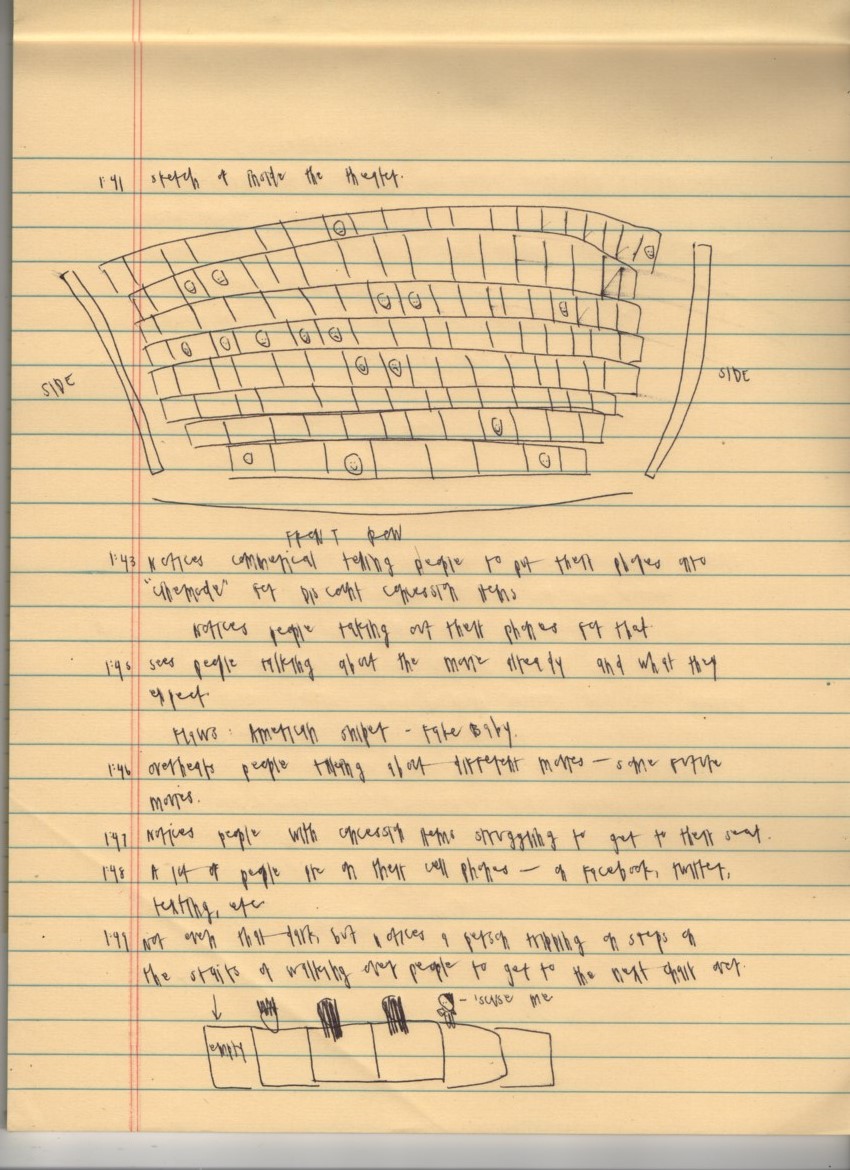 1:41 sketch of inside the theater.
SIDE
SIDE
FRONT ROW
1:43 Notices commerical telling people to put their phones into
"cinemode" for discount concession items
Notices people taking out their phones for that
1:45 sees people talking about the movie already and what they
expect.
Flaws: American sniper - Fake Baby.
1:46 overhears people talking about different movies — some future
movies.
1:47 Notices people with concession items struggling to get to their seat.
1:48 A lot of people are on their cell phones — on Facebook, twitter,
texting, etc
1:49 Not even that dark, but notices a person tripping on steps on
the stairs or walking over people to get to the next chair over.
- 'scuse me
empty